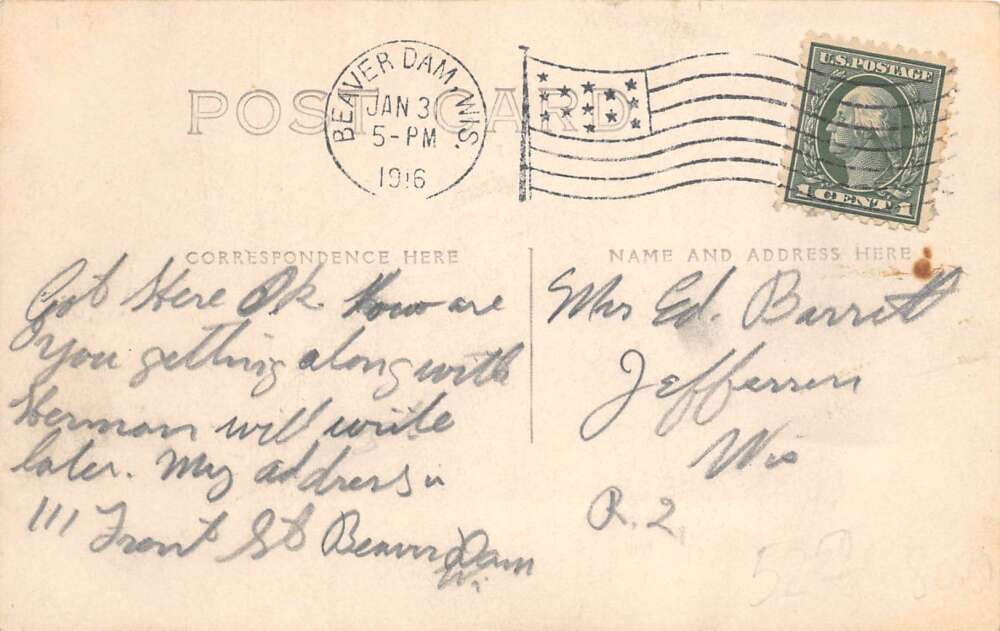 POST CARD
BEAVER DAM, WIS.
JAN 3
5-PM
1916
U.S. POSTAGE
1 CENT 1
CORRESPONDENCE HERE
Got Here Ok. How are
you getting along with
Herman will write
later. My address is
111 Front St Beaver Dam
Wi
NAME AND ADDRESS HERE
Mrs Ed. Barrett
Jefferson
Wis
R. 2